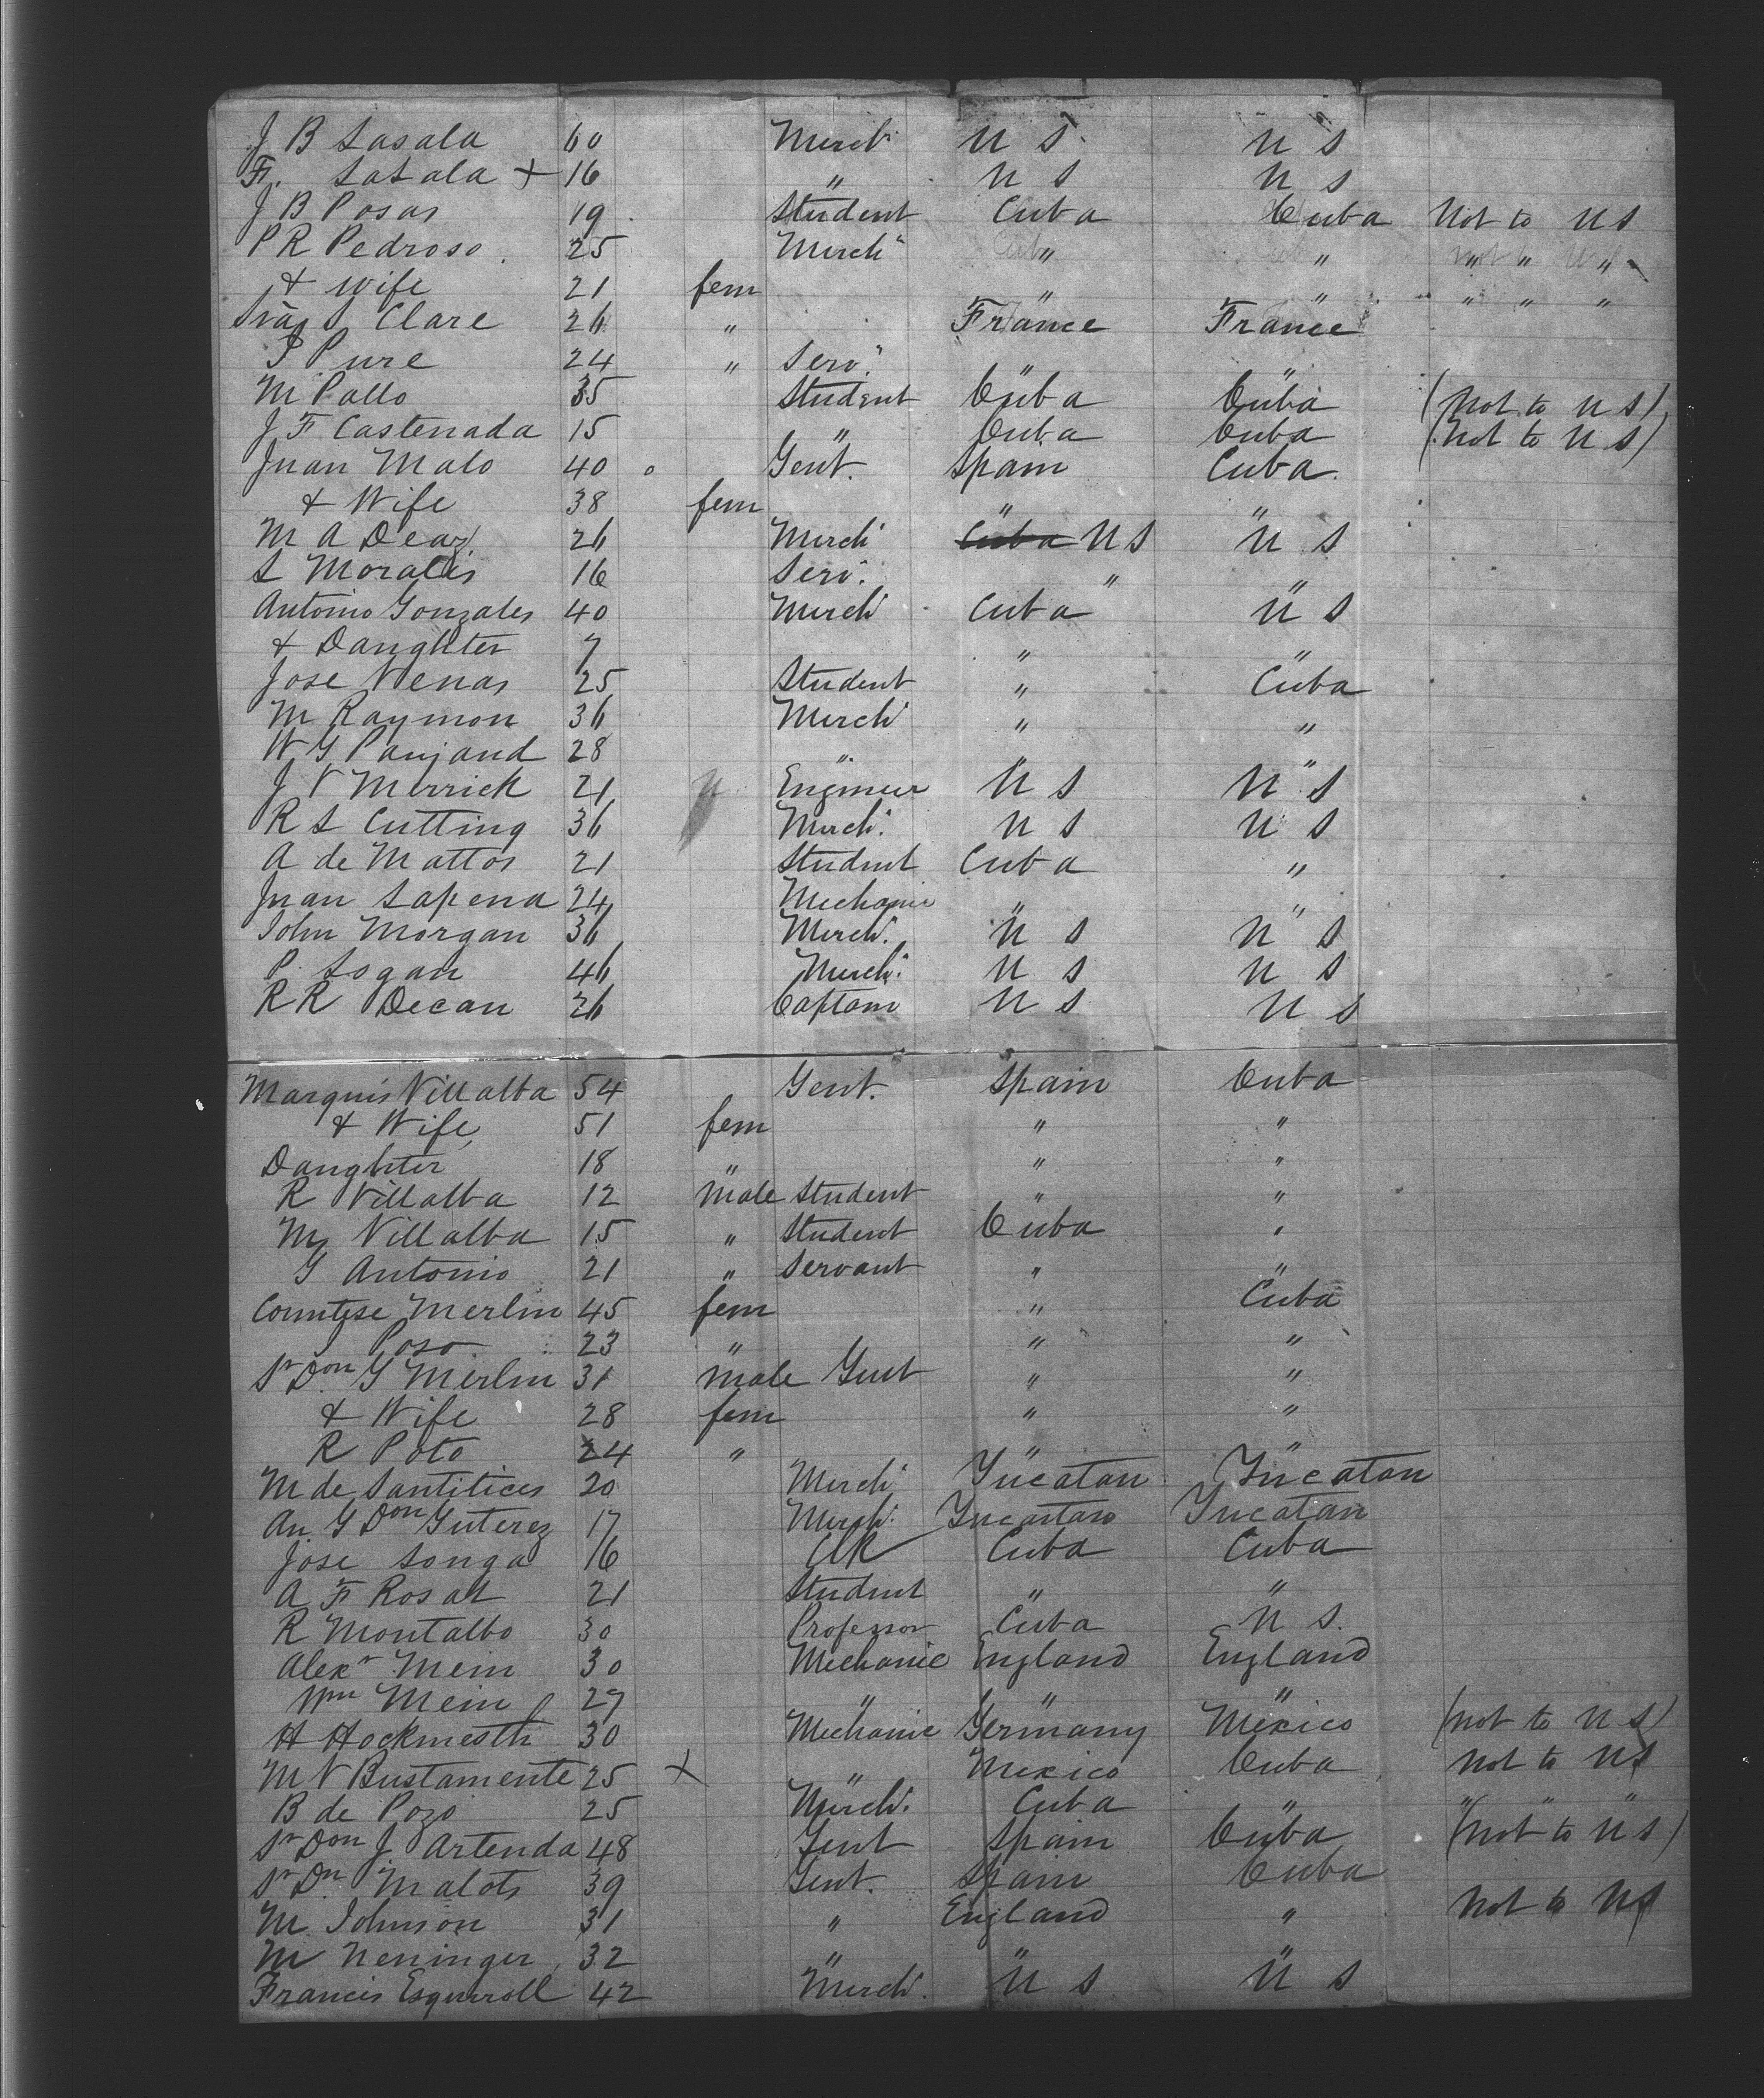 J B Lasala 60 Merch U S U S
F. Lasala + 16 " U S U S
J B Posas 19 Student Cuba Cuba Not to U S
P R Pedroso 25 Merch " " " " "
& wife 21 fem " " " " "
S Clare 26 " France France
P Pure 24 " Serv. " "
M Pollo 35 Student Cuba Cuba (Not to U S)
J F Castenada 15 " Cuba Cuba (Not to U S)
Juan Malo 40 Gent. Spain Cuba
& Wife 38 fem " "
M A Deaz 26 Merch Cuba U S U S
S Morales 16 Serv. " "
Antonio Gonzales 40 Merch Cuba U S
& Daughter 7 " "
Jose Venas 25 Student " Cuba
M Raymon 36 Merch " "
W G Paujaud 28 " " "
J V Merrick 21 Engineer U S U S
R L Cutting 36 Merch. U S U S
A de Mattos 21 Student Cuba "
Juan Lapena 24 Mechanic " "
John Morgan 36 Merch. U S U S
P. Logan 46 Merch. U S U S
R R Decan 26 Captain U S U S
Marquis Villalba 54 Gent. Spain Cuba
& Wife 51 fem " "
Daughter 18 " " "
R Villalba 12 male Student " "
M Villalba 15 " Student Cuba "
G Antonio 21 " Servant " "
Countese Merlin 45 fem " Cuba
Poso 23 " " "
Sr Don G Merlin 31 male Gent " "
& Wife 28 fem " "
R Poto 24 " " "
M de Santilices 20 Merch Yucatan Yucatan
An. G Don Guterez 17 Merch. Yucatan Yucatan
Jose Longa 16 Clk Cuba Cuba
A F Rosat 21 Student " "
R Montalbo 30 Professor Cuba U S.
Alexr Mein 30 Mechanic England England
Wm Mein 27 " " "
H Hockmesth 30 Mechanic Germany Mexico (not to U S)
M V Bustamente 25 + " Mexico Cuba not to US
B de Pozo 25 Merch. Cuba " " " "
Sr Don J. Artenda 48 Gent Spain Cuba (not to U S)
Sr Dn Malots 39 Gent. Spain Cuba
M Johnson 31 " England " not to US
M Neninger 32 " " "
Francis Esquiroll 42 Merch. U S U S